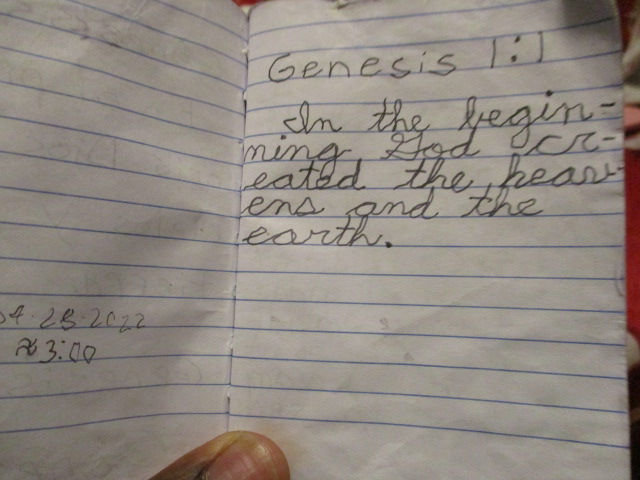 04·28·2022
≈3:00
Genesis 1:1
In the begin-
ning God cr-
eated the heav-
ens and the
earth.